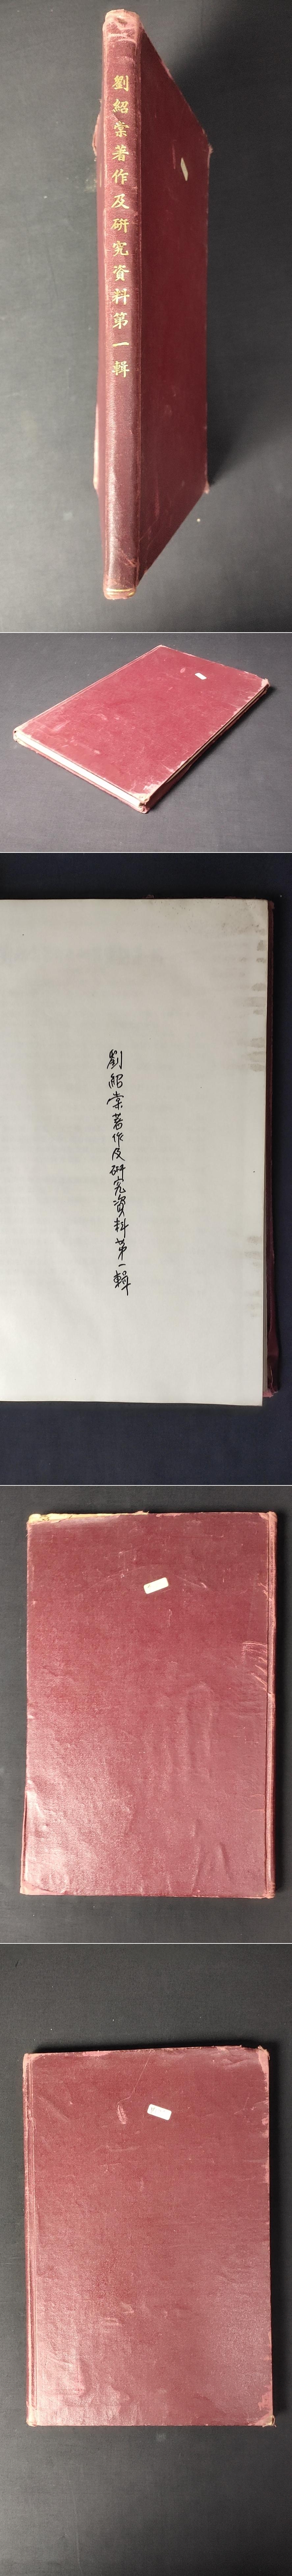 劉紹棠著作及研究資料第一輯
劉紹棠著作及研究資料第一輯